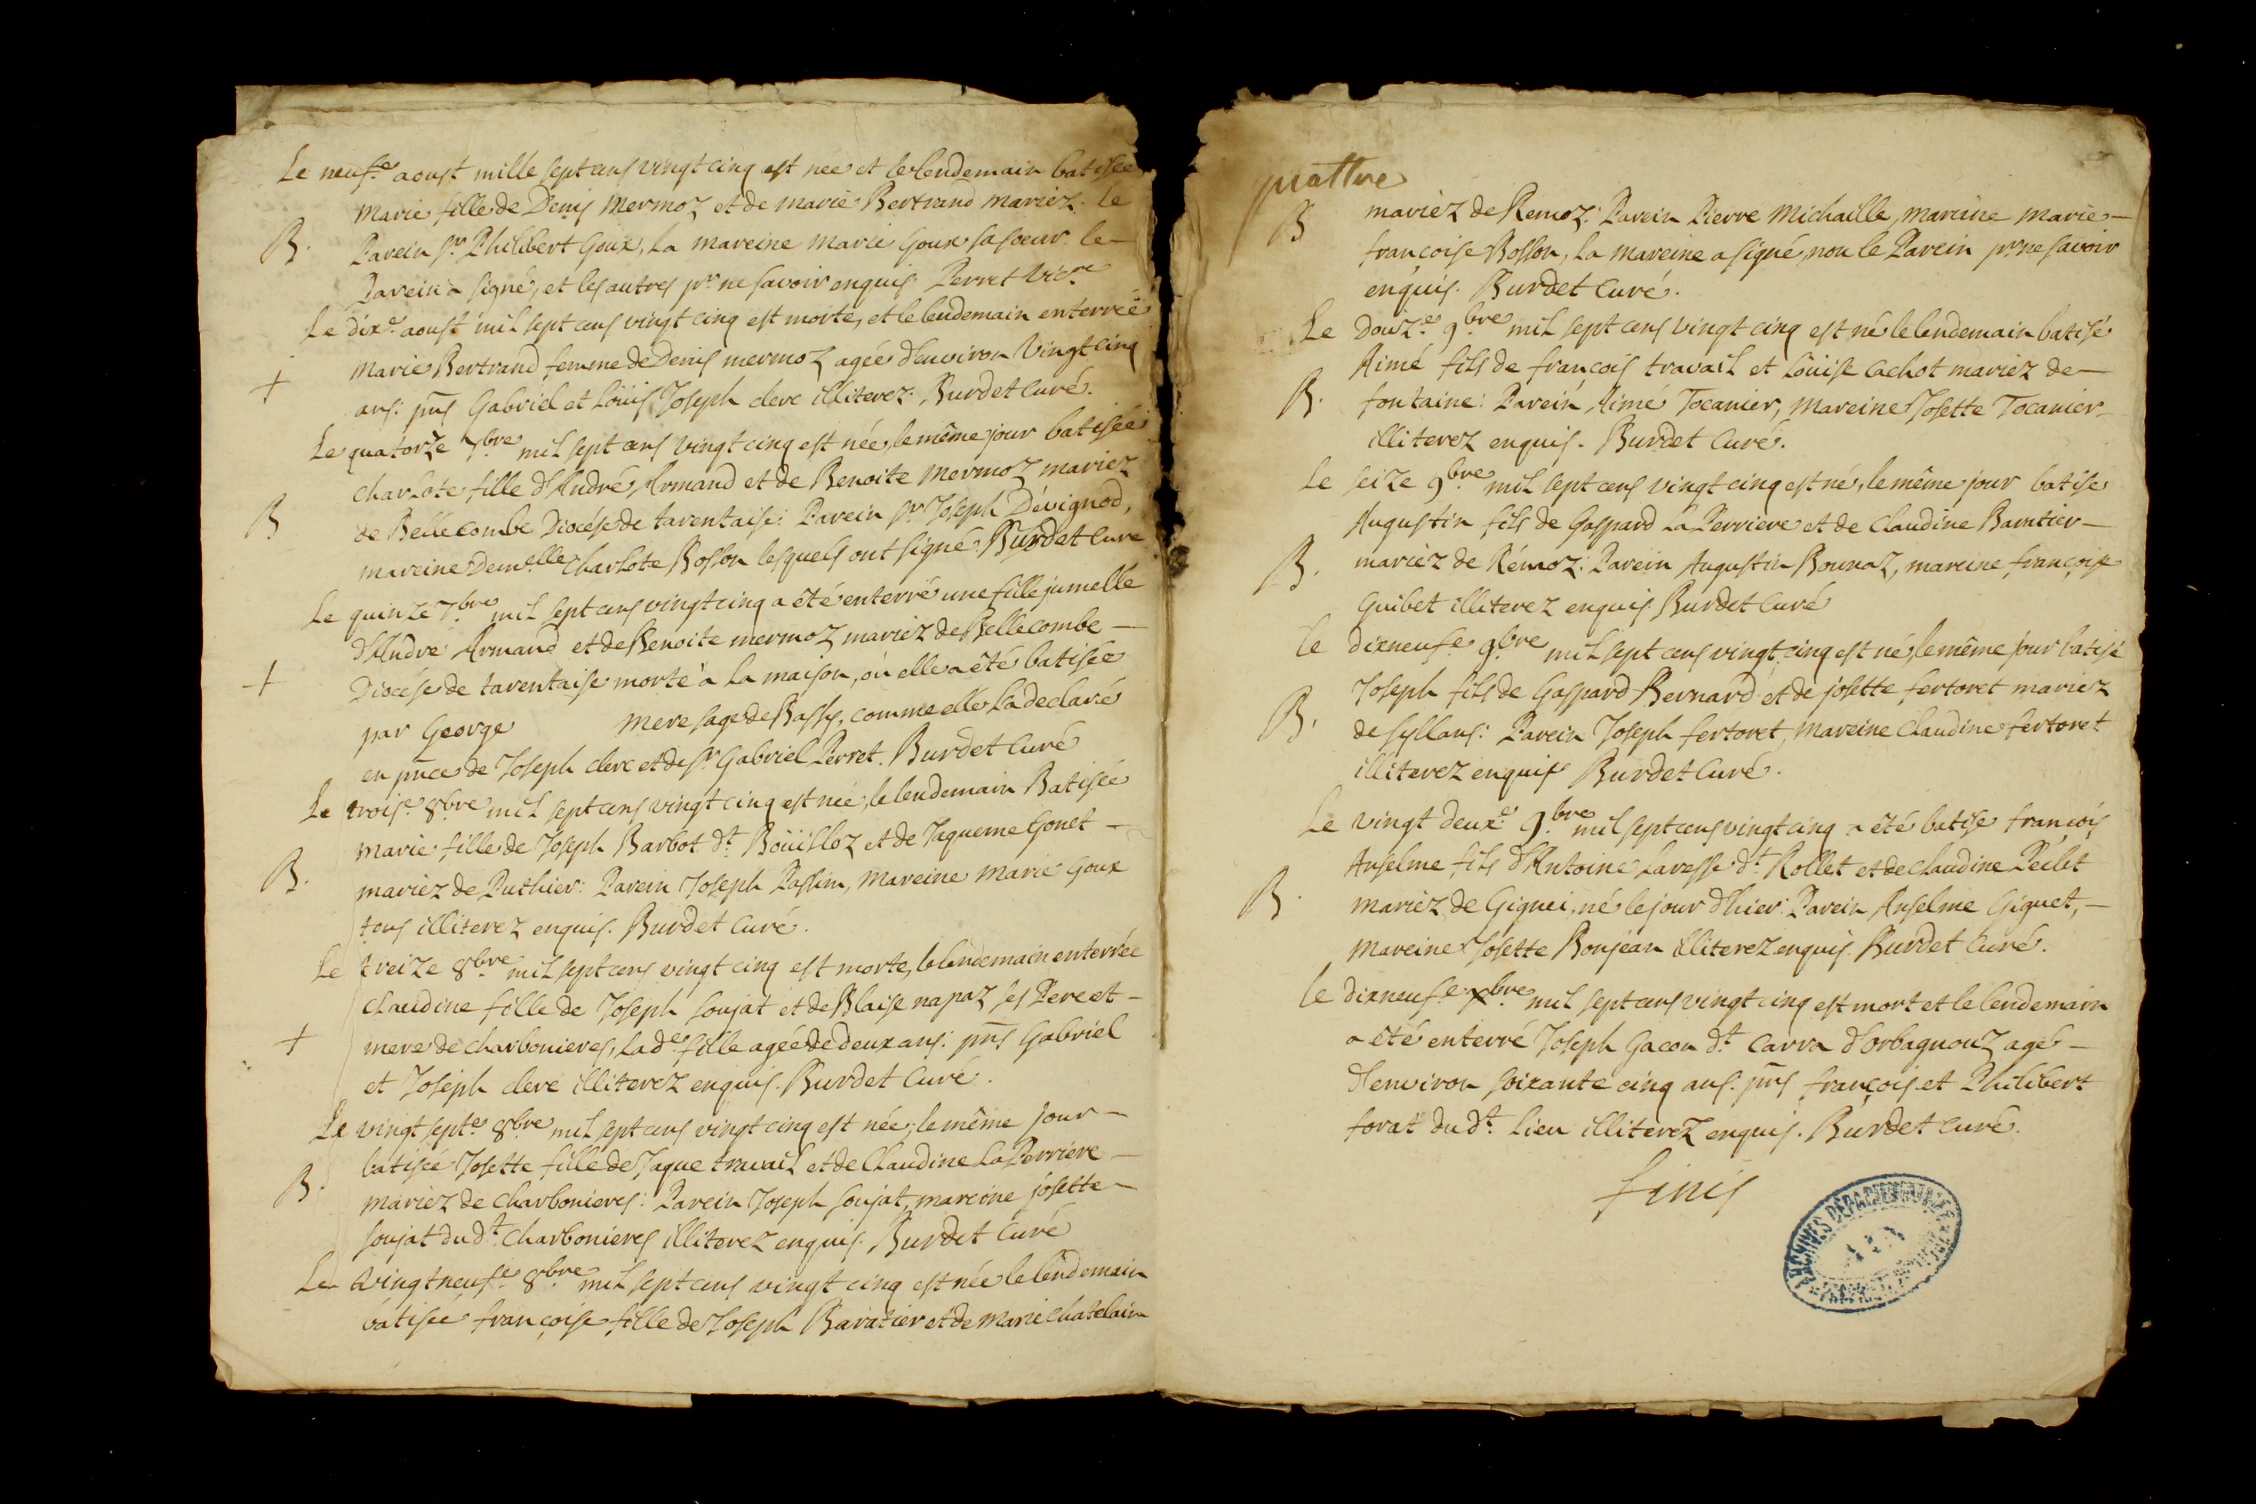 Le neufe aoust mille sept cens vingt cinq est née et le lendemain batisée
Marie fille de Denis Mermoz et de Marie Bertrand mariez. le
B. Parein Sr Philibert Goux, la mareine Marie Goux sa soeur. le
Parein a signé, et les autres pr ne savoir enquis. Perret Vicre
Le dixe aoust mil sept cens vingt cinq est morte, et le lendemain enterrée
Marie Bertrand femme de Denis mermoz agée d'environ vingt cinq
+ ans: pns Gabriel et Loüis Joseph clerc illiterez. Burdet Curé.
Le quatorze 7bre mil sept cens vingt cinq est née, le même jour batisée
Charlote fille d'André Armand et de Benoite Mermoz mariez
B de Bellecombe Diocése de tarentaise: Parein Sr Joseph Dévignod,
mareine Demelle Charlote Bosson lesquels ont signé Burdet Curé
Le quinze 7bre mil sept cens vingt cinq a été enterré une fille jumelle
d'André Armand et de Benoite mermoz mariez de Bellecombe
+ Diocése de tarentaise morte à la maison, où elle a été batisée
par George mere sage de Bassy, comme elle l'a declaré
en pnce de Joseph clerc et de Sr Gabriel Perret. Burdet Curé
Le troise 8bre mil sept cens vingt cinq est née, le lendemain Batisée
Marie fille de Joseph Barbot dt Boüilloz et de Jaqueme Gonet
B. mariez de Puthier: Parein Joseph Passin, Mareine Marie Goux
tous illiterez enquis. Burdet Curé.
Le treize 8bre mil sept cens vingt cinq est morte, le lendemain enterrée
Claudine fille de Joseph Soujat et de Blaise napaz ses Pere et
+ mere de charbonieres, la de fille agée de deux ans: pns Gabriel
et Joseph clerc illiterez enquis. Burdet Curé.
Le vingt septe 8bre mil sept cens vingt cinq est née, le même jour
batisée Josette fille de Jaque travail et de Claudine La Perriere
B. mariez de Charbonieres: Parein Joseph soujat, mareine josette
soujat du dt Charbonieres illiterez enquis. Burdet Curé
Le vingt neufe 8bre mil sept cens vingt cinq est née le lendemain
batisée françoise fille de Joseph Baratier et de Marie Chatelain
quattre
B mariez de Remoz: Parein Pierre Michaille, mareine marie
françoise Bosson, la mareine a signé, non le Parein pr ne savoir
enquis. Burdet Curé.
Le Douze 9bre mil sept cens vingt cinq est né le lendemain batisé
Aimé fils de françois travail et Loüise Cachot mariez de
B. fontaine: Parein Aimé Tocanier, mareine Josette Tocanier
illiterez enquis. Burdet Curé.
Le seize 9bre mil sept cens vingt cinq est né, le même jour batisé
Augustin fils de Gaspard La Perriere et de Claudine Baratier
B. mariez de Rémoz: Parein Augustin Bounaz, mareine françoise
Guibet illiterez enquis Burdet Curé
Le dixneufe 9bre mil sept cens vingt cinq est né, le même jour batisé
Joseph fils de Gaspard Bernard et de josette fertoret mariez
B. de syllans: Parein Joseph fertoret, Mareine Claudine fertoret
illiterez enquis Burdet Curé.
Le vingt deuxe 9bre mil sept cens vingt cinq a été batisé françois
Anselme fils d'Antoine Lavesse dt Rollet et de Claudine Peilet
B. mariez de Gignei, né le jour d'hier: Parein Anselme Giguet,
Mareine Josette Bonjean illiterez enquis. Burdet Curé.
Le dixneufe xbre mil sept cens vingt cinq est mort et le lendemain
a été enterré Joseph Gacon dt Carra d'Orbagnouz agé
d'environ soixante cinq ans: pns françois et Philibert
forat du dt. lieu illiterez enquis. Burdet Curé.
finis
ARCHIVES DÉPARTEMENTALES
AIN